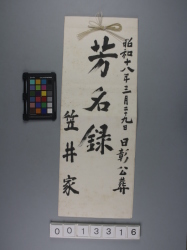 昭和十八年三月二十九日 日彰公葬
芳名録
笠井家
0013316